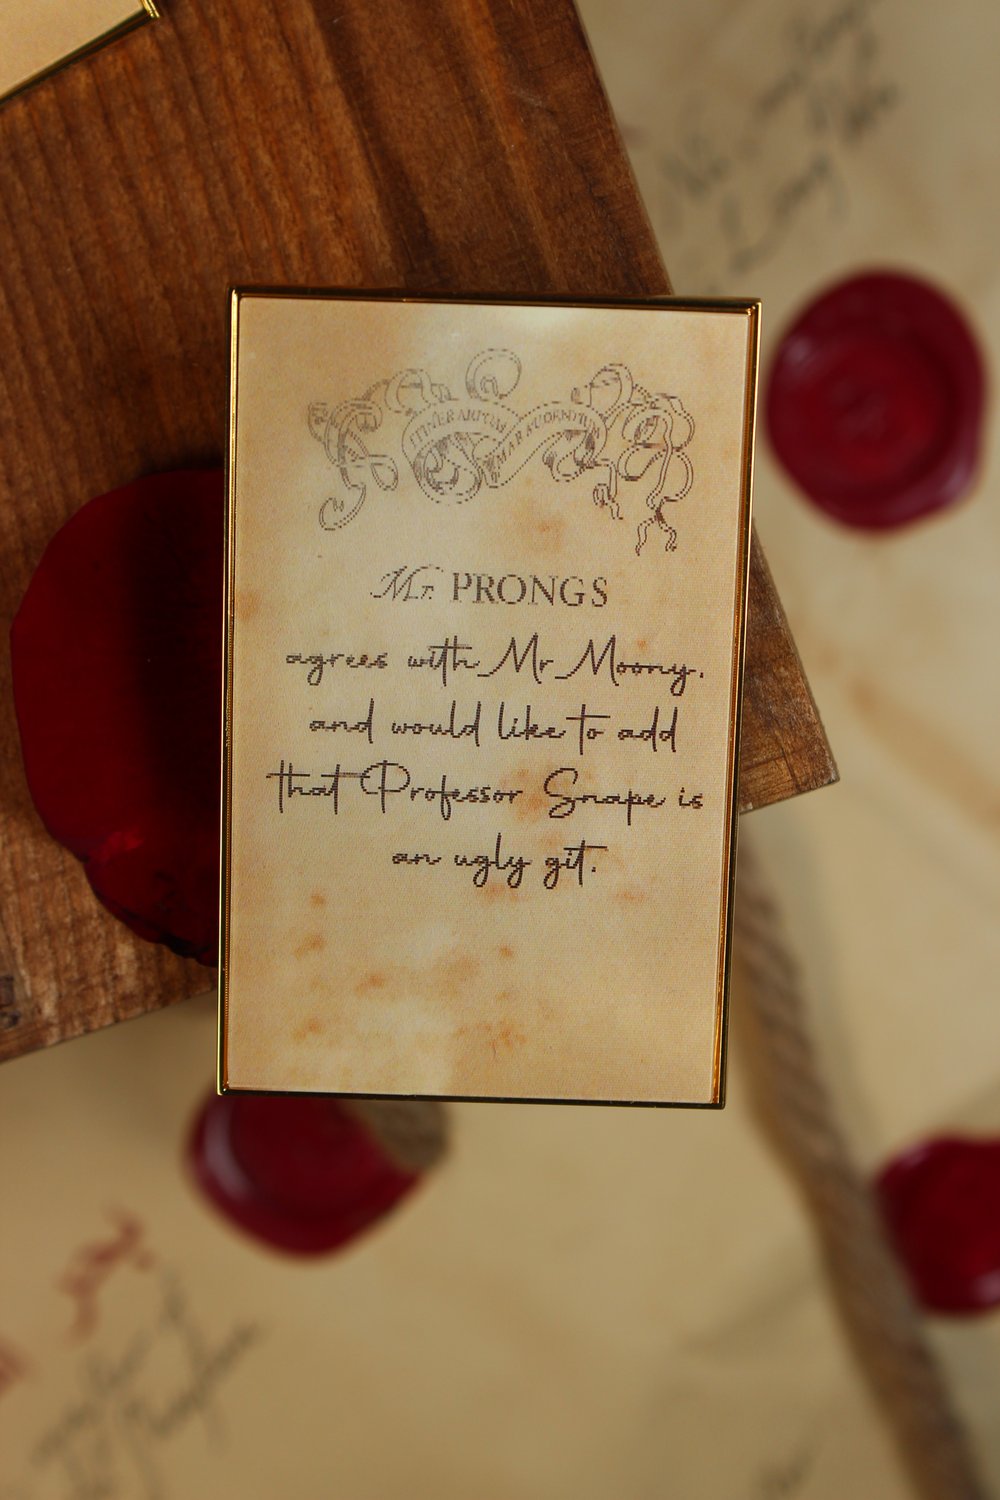 ITINERARIUM
MARAUDENTIUM
Mr. PRONGS
agrees with Mr Moony,
and would like to add
that Professor Snape is
an ugly git.